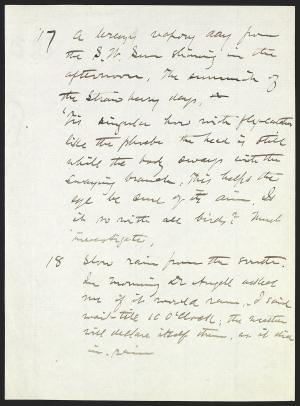 17 A breezy vapory day from
the S.W. Sun shining in the
afternoon, The summit of
the Strawberry days,
'Tis singular how with flycatchers
like the phoebe the head is still
while the body sways with the
swaying branch. This helps the
eye be sure of its aim, Is
it so with all birds? Must
investigate,
18 Slow rain from the South.
In morning Dr Angell asked
me if it would rain, I said
wait till 10 O'Clock; the weather
will declare itself then, as it did
in rain